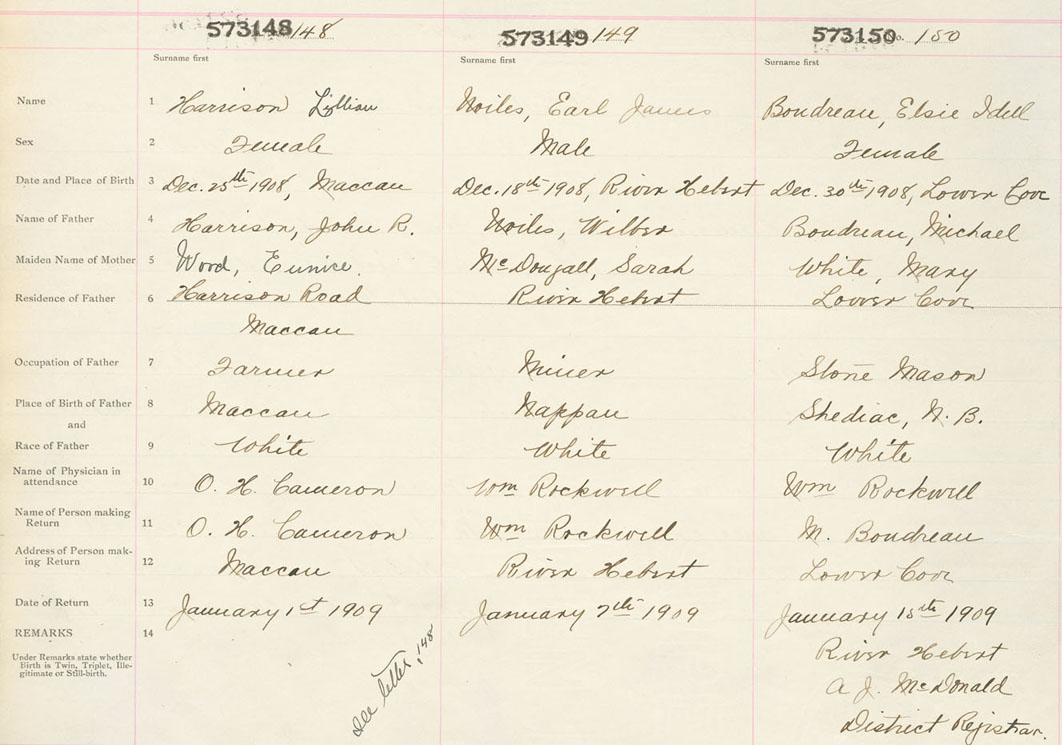 573148 148 573149 149 573150 No. 150
Surname first Surname first Surname first
Name 1 Harrison Lillian Noiles, Earl James Boudreau, Elsie Idell
Sex 2 Female Male Female
Date and Place of Birth 3 Dec. 25th 1908, Maccan Dec. 18th 1908, River Hebert Dec. 30th 1908, Lower Cove
Name of Father 4 Harrison, John R. Noiles, Wilber Boudreau, Michael
Maiden Name of Mother 5 Word, Eunice. McDougall, Sarah White, Mary
Residence of Father 6 Harrison Road River Hebert Lower Cove
Maccan
Occupation of Father 7 Farmer Miner Stone Mason
Place of Birth of Father 8 Maccan Nappan Shediac, N. B.
and
Race of Father 9 White White White
Name of Physician in
attendance 10 O. H. Cameron Wm Rockwell Wm Rockwell
Name of Person making
Return 11 O. H. Cameron Wm Rockwell M. Boudreau
Address of Person mak-
ing Return 12 Maccan River Hebert Lower Cove
Date of Return 13 January 1st 1909 January 7th 1909 January 15th 1909
REMARKS 14
Under Remarks state whether
Birth is Twin, Triplet, Ille-
gitimate or Still-birth.
see letter, 148
River Hebert
A J. McDonald
District Registrar.